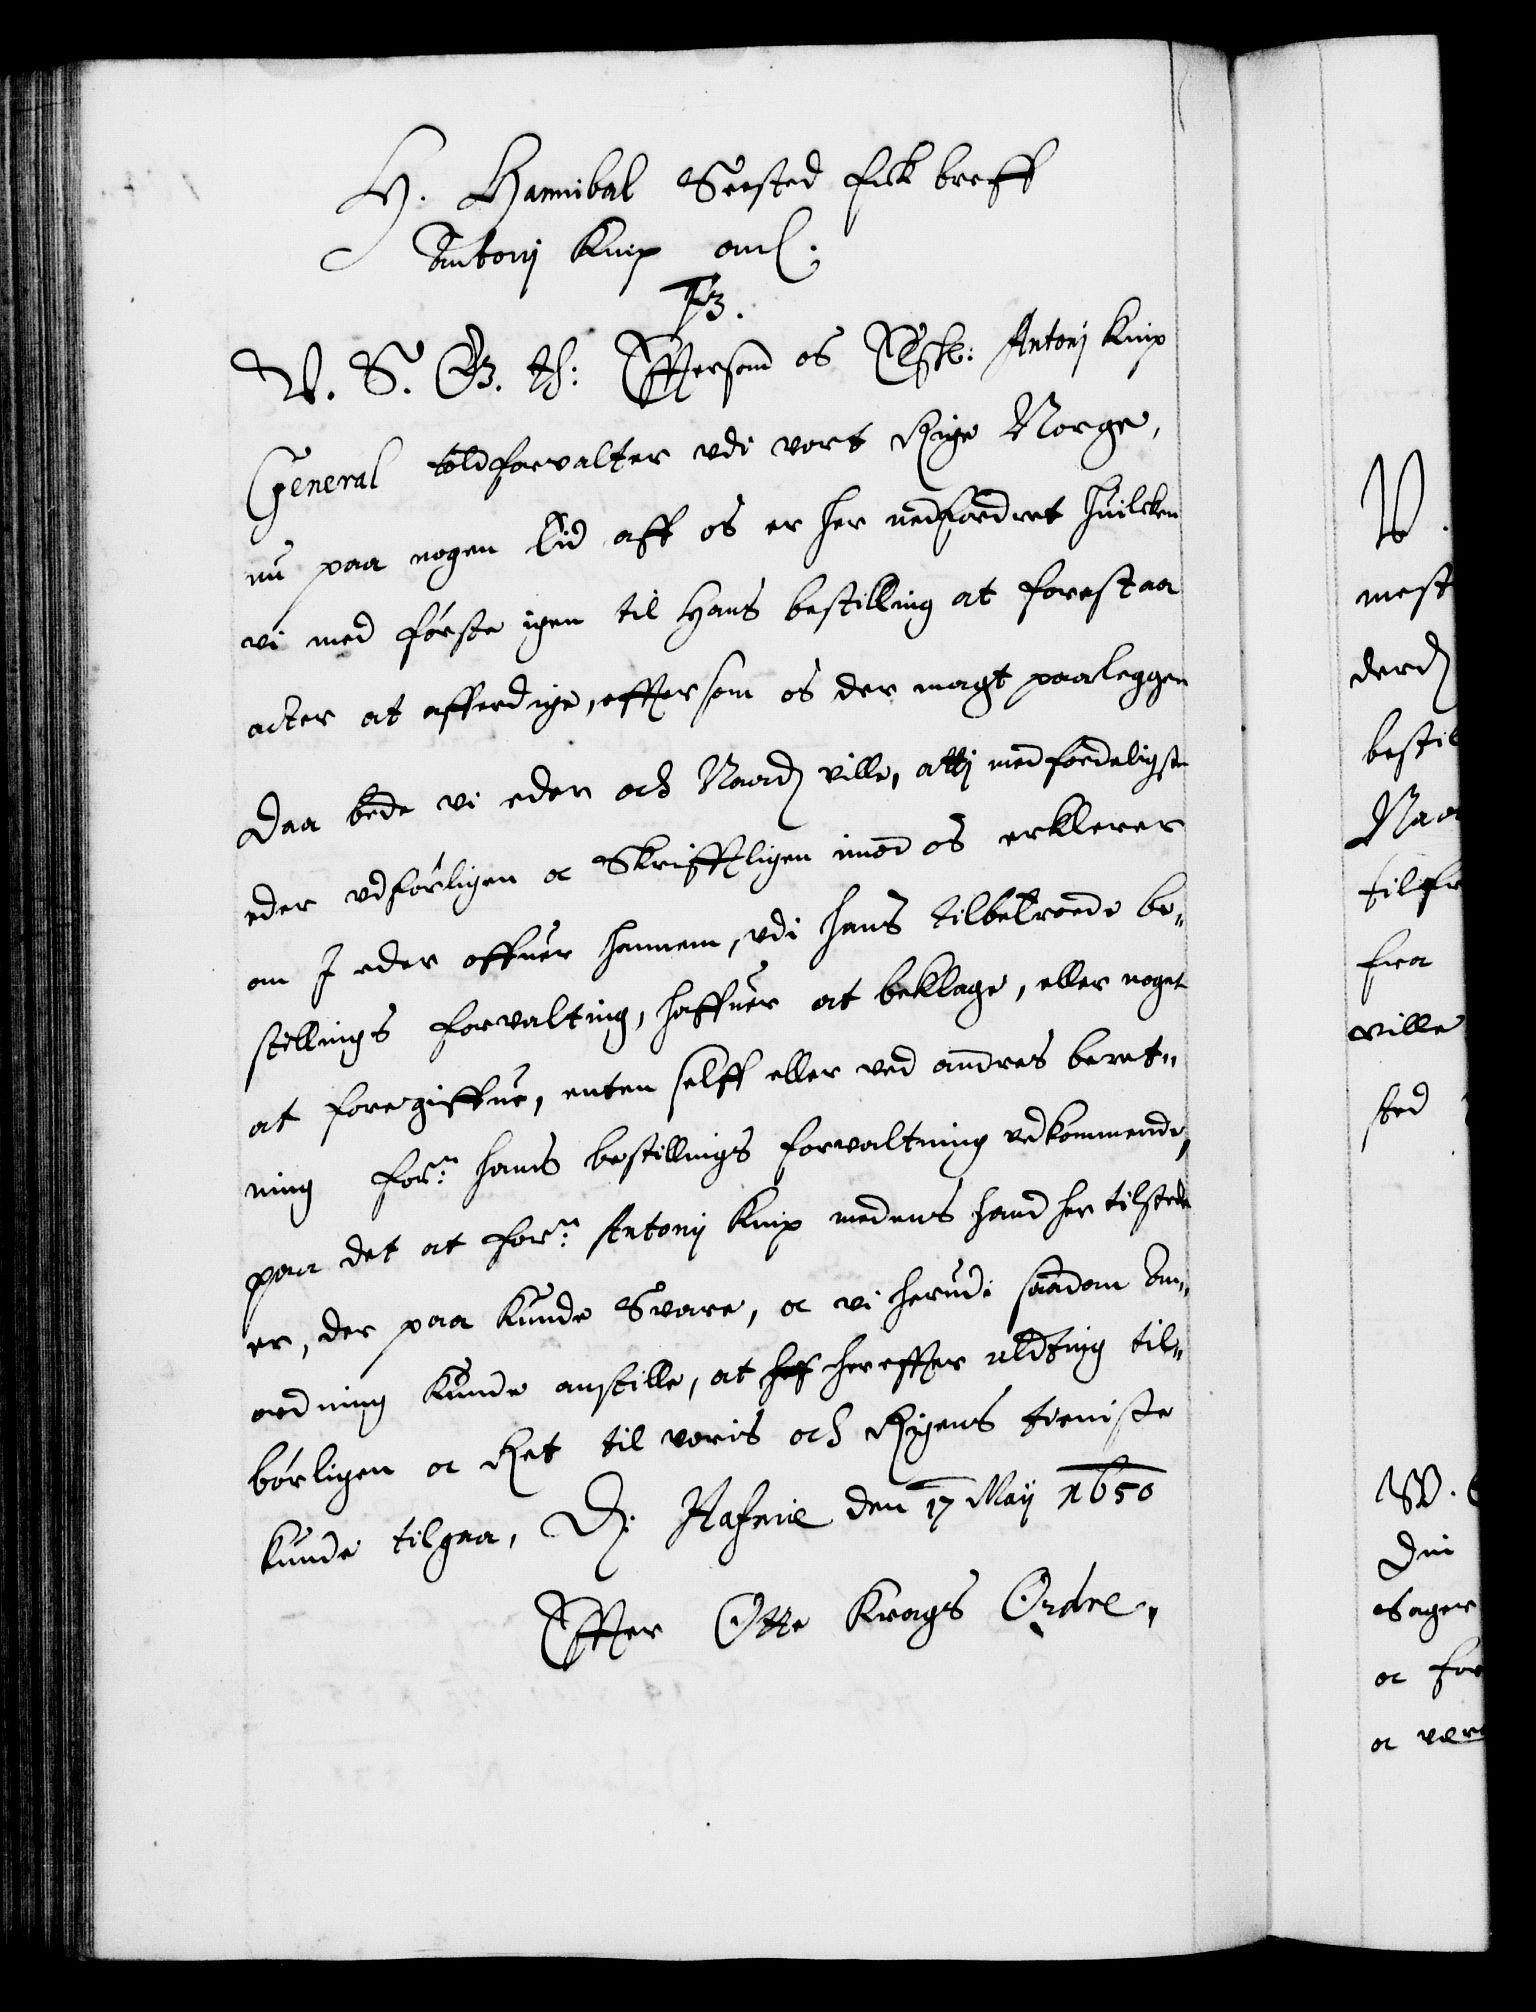 H. Hannibal Seested fick breff
Antonij Knip anl.
F3.
W. S. G. th: Eftersom os Elskl: Antonj Knip
General toldforvalter vdi vort Rige Norge,
nu paa nogen tid aff os er her nedfordret huilcken
vi med første igen til Hans bestilling at forestaa
acter at afferdige, effter som os der magt paaligger
Daa bede vi eder och Naadj ville, attj med forderligste
eder vdførligen oc Skrifftligen imod os erklerer
om I eder offuer hannem, vdi hans tilbetroede be„
stillings forvalting, haffuer at beklage, eller noget
at foregiffue, enten selff eller ved andres beret„
ning forn: hans bestillings forvaltning vedkommende,
paa det at forn: Antonij Knip medens hand her tilstede
er, der paa kunde Svare, oc vi herudi saadan An„
ordning kunde anstille, at her effter alting til„
børligen oc Ret til voris och Rigens tieniste
kunde tilgaa, D: Hafnie den 17 Maij 1650
Effter Otte Krags Ordre.
W.
mest
derd
bestil
Naa
tilfr
fra
ville
sted
W.
Din
Sager
oc for
oc vær